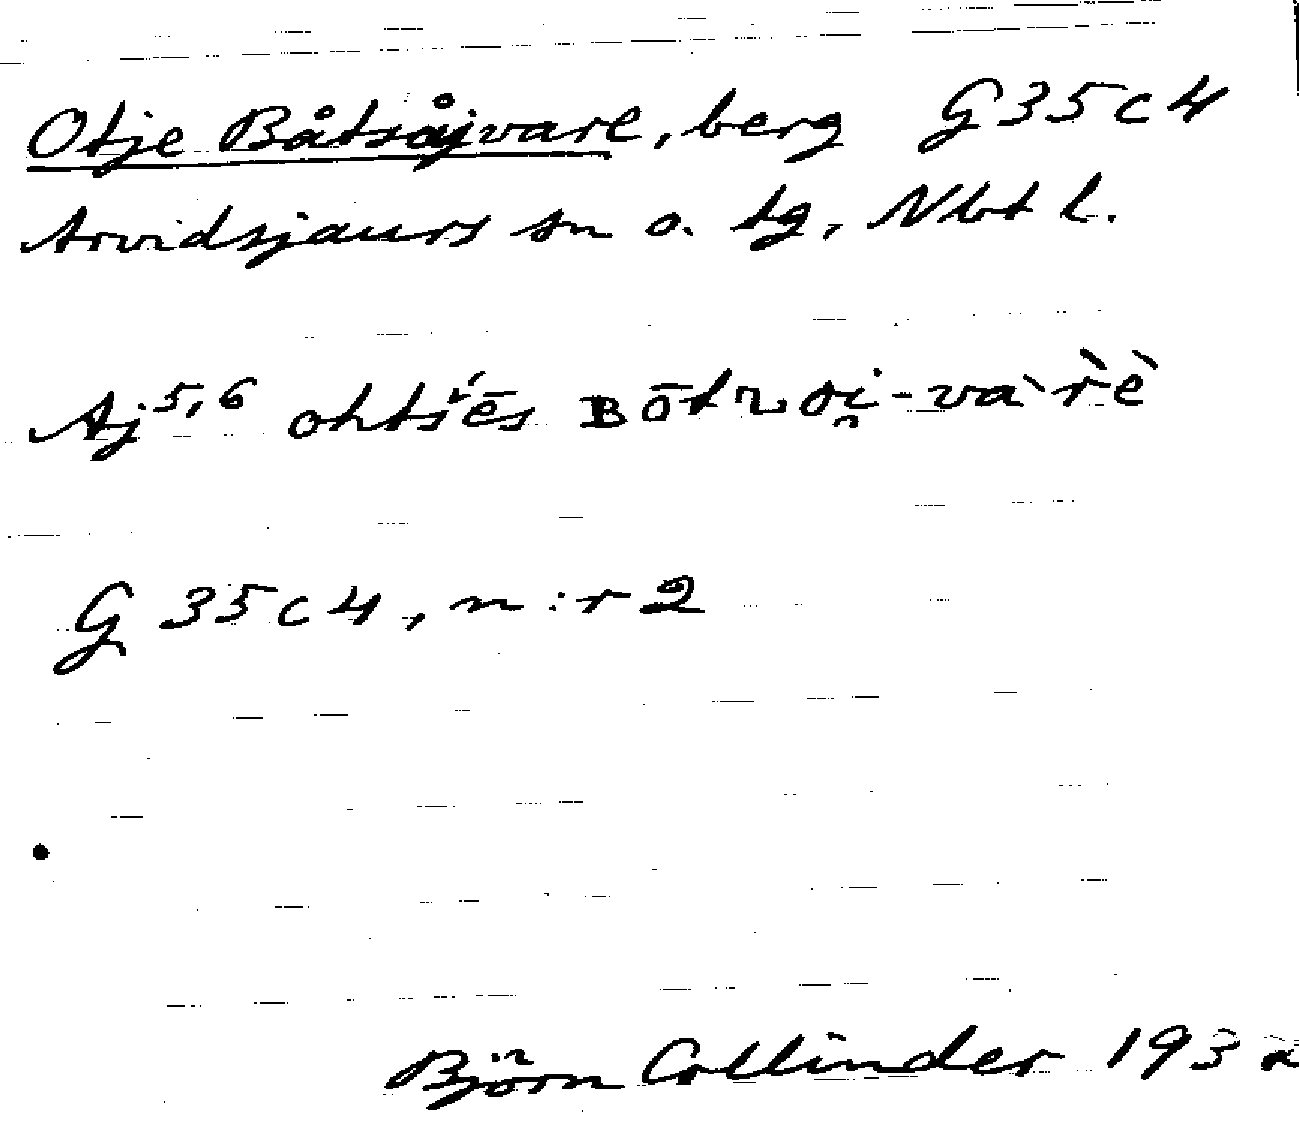 Otje Båtsåjvare, berg G35c4
Arvidsjaurs sn o. tg, Nbt l.
Aj 5,6
G 35c4, n:r 2
Björn Collinder 193